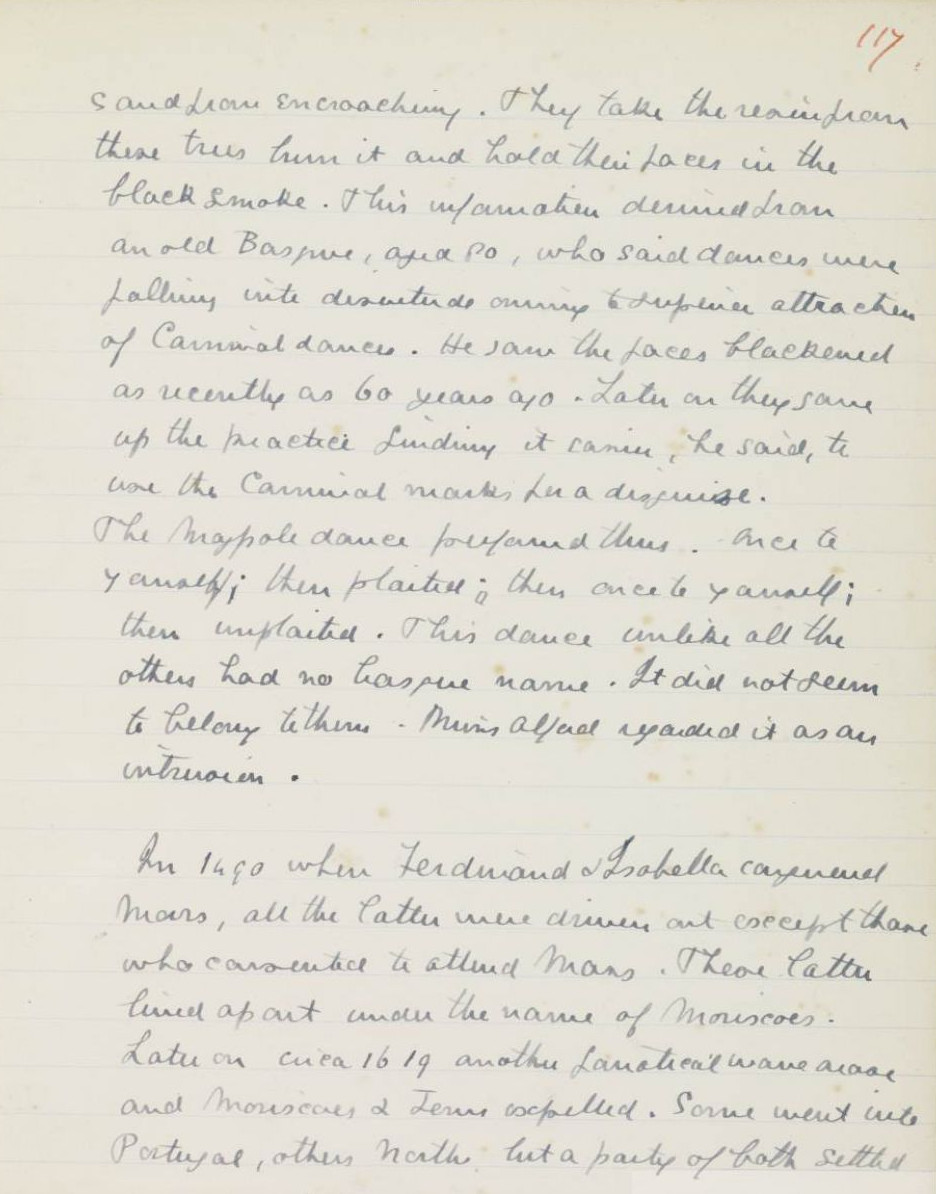 117.
sand from encroaching. They take the resin from
these trees burn it and hold their faces in the
black smoke. This information derived from
an old Basque, aged 80, who said dances were
falling into desuetude owing to superior attraction
of Carnival dances. He saw the faces blackened
as recently as 60 years ago. Later on they gave
up the practice finding it easier, he said, to
use the Carnival masks for a disguise.
The Maypole dance performed thus. Once to
yourself; then plaited; then once to yourself;
then unplaited. This dance unlike all the
others had no basque name. It did not seem
to belong to them. Miss Alford regarded it as an
intrusion.
In 1490 when Ferdinand & Isabella conquered
Moors, all the latter were driven out except those
who consented to attend Mass. These latter
lived apart under the name of Moriscoes.
Later on circa 1619 another fanatical wave arose
and Moriscoes & Jews expelled. Some went into
Portugal, others North, but a party of both settled